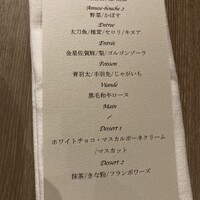 Amuse-bouche 2
野菜/かぼす
Entree
太刀魚/椎茸/セロリ/キヌア
Entrée
金星佐賀豚/梨/ゴルゴンゾーラ
Poisson
青羽太/手羽先/じゃがいも
Viande
黒毛和牛ロース
Main
/
Dessert 1
ホワイトチョコ・マスカルポーネクリーム
/マスカット
Dessert 2
抹茶/きな粉/フランボワーズ